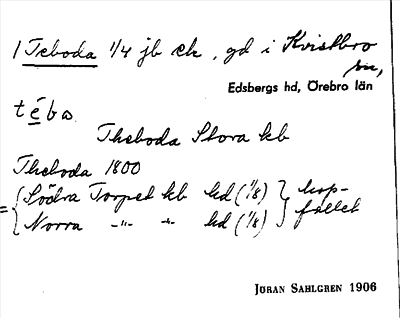 1 Teboda 1/4 jb ek, gd i Kvistbro
sn,
Edsbergs hd, Örebro län
téba
Theboda Stora kb
Theboda 1800
= { Södra Torpet kb hd (1/8) } hop-
{ Norra -"- -"- hd (1/8) } fallet
JÖRAN SAHLGREN 1906